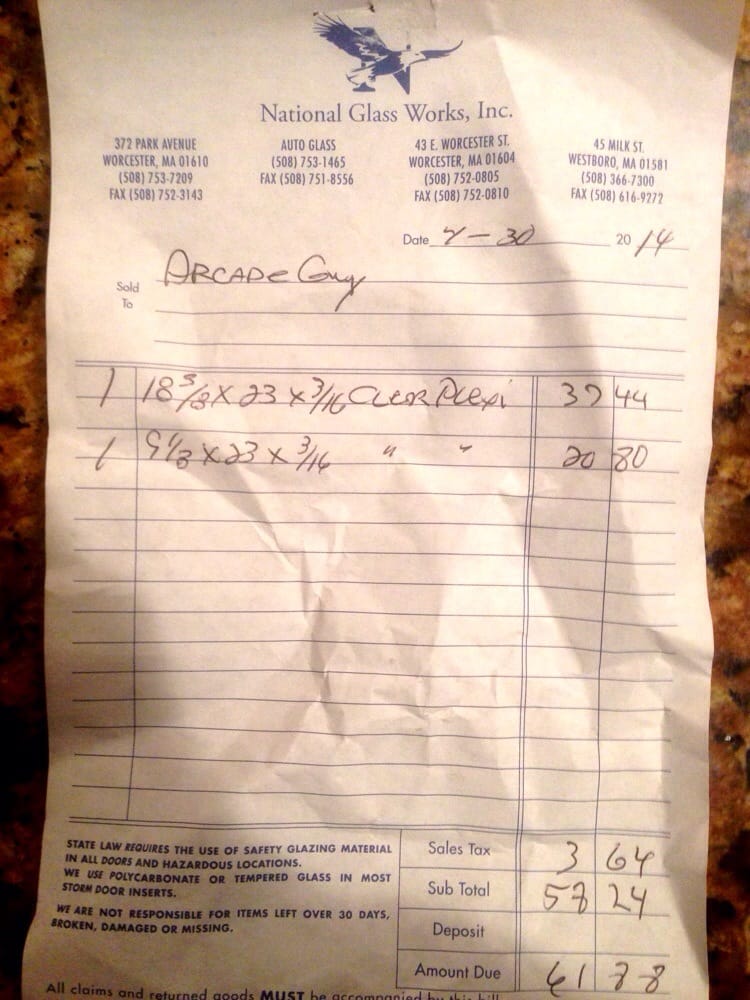 National Glass Works, Inc.
372 PARK AVENUE
WORCESTER, MA 01610
(508) 753-7209
FAX (508) 752-3143
AUTO GLASS
(508) 753-1465
FAX (508) 751-8556
43 E. WORCESTER ST.
WORCESTER, MA 01604
(508) 752-0805
FAX (508) 752-0810
45 MILK ST.
WESTBORO, MA 01581
(508) 366-7300
FAX (508) 616-9272
Date 7-30 2014
Sold To ARCADE Guy
1 18 5/8 x 23 x 3/16 CLEAR PLEXI 37 44
1 9 1/8 x 23 x 3/16 " " 20 80
STATE LAW REQUIRES THE USE OF SAFETY GLAZING MATERIAL
IN ALL DOORS AND HAZARDOUS LOCATIONS.
WE USE POLYCARBONATE OR TEMPERED GLASS IN MOST
STORM DOOR INSERTS.
WE ARE NOT RESPONSIBLE FOR ITEMS LEFT OVER 30 DAYS,
BROKEN, DAMAGED OR MISSING.
Sales Tax 3 64
Sub Total 58 24
Deposit
Amount Due 61 88
All claims and returned goods MUST be accompanied by this bill